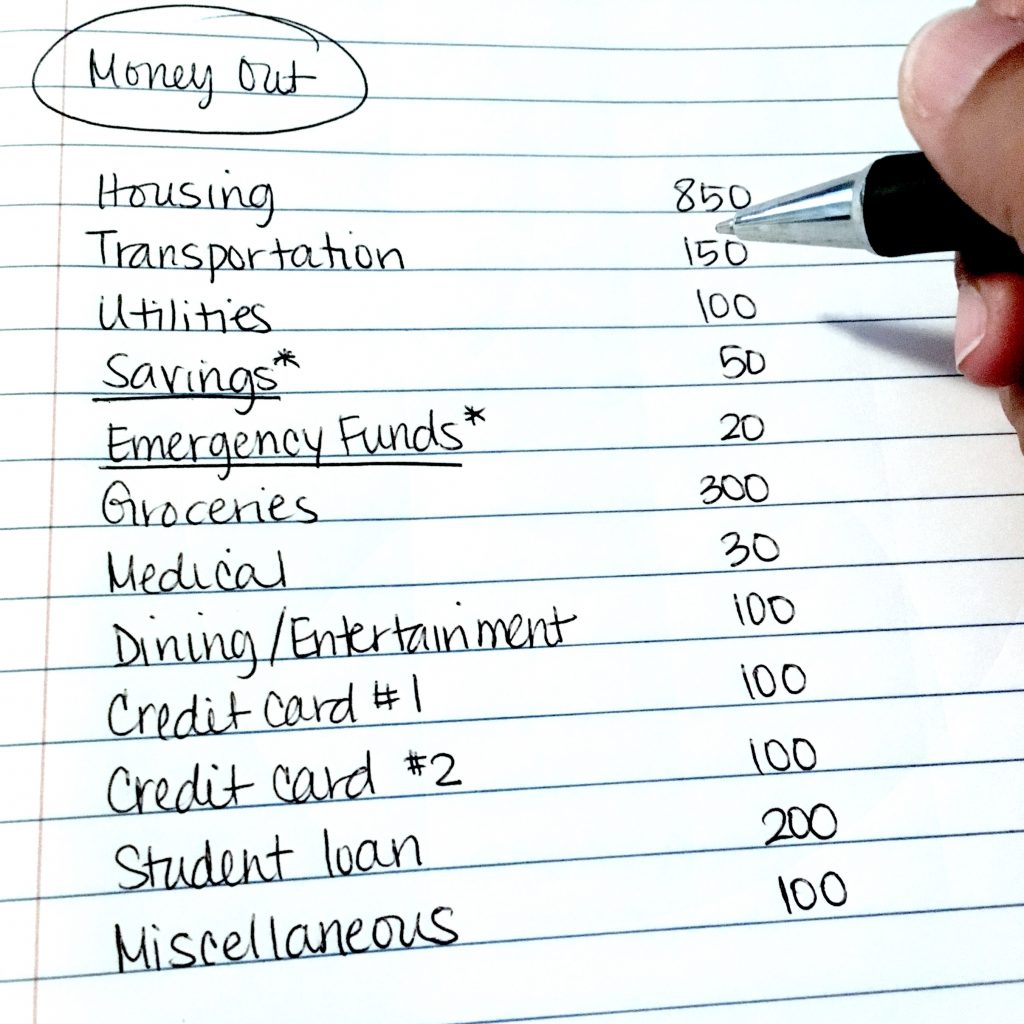 Money Out
Housing 850
Transportation 150
Utilities 100
Savings* 50
Emergency Funds* 20
Groceries 300
Medical 30
Dining/Entertainment 100
Credit Card #1 100
Credit Card #2 100
Student loan 200
Miscellaneous 100